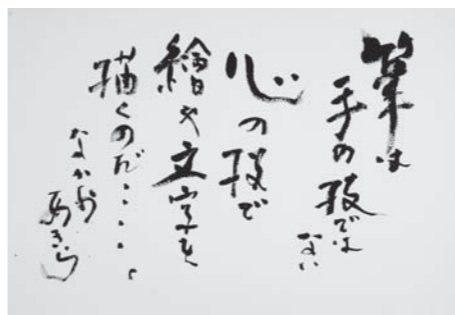 筆は
手の技では
ない
心の技で
繪や文字を
描くのだ・・・・。
なかお
あきら